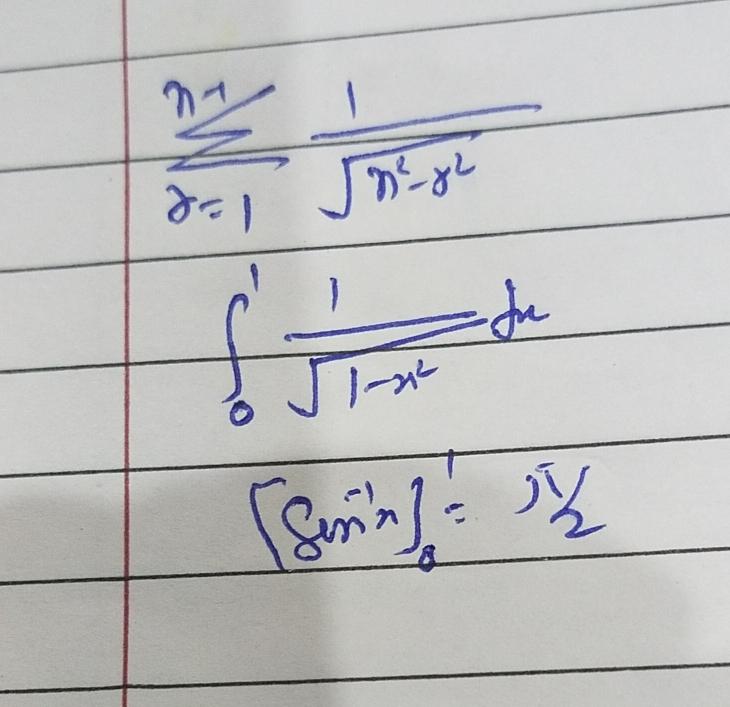 \sum_{r=1}^{n-1} \frac{1}{\sqrt{n^2-r^2}}
\int_0^1 \frac{1}{\sqrt{1-x^2}} dx
[sin^{-1}x]_0^1 = π/2